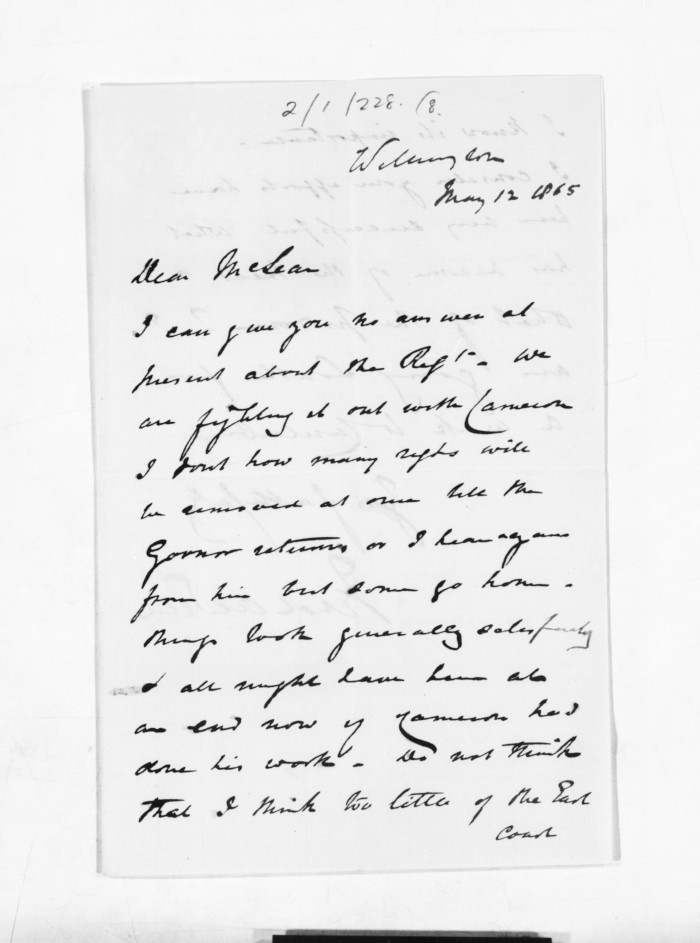 2/1/228. /8.
Wellington
May 12 1865
Dear McLean
I can give you no answer at
present about the Regt. We
are fighting it out with Cameron
I dont how many regts will
be removed at once till the
Govnor returns or I hear again
from him but some go home.
Things look generally satisfactorily
& all might have been at
an end now if Cameron had
done his work. Do not think
that I think too little of the East
Coast